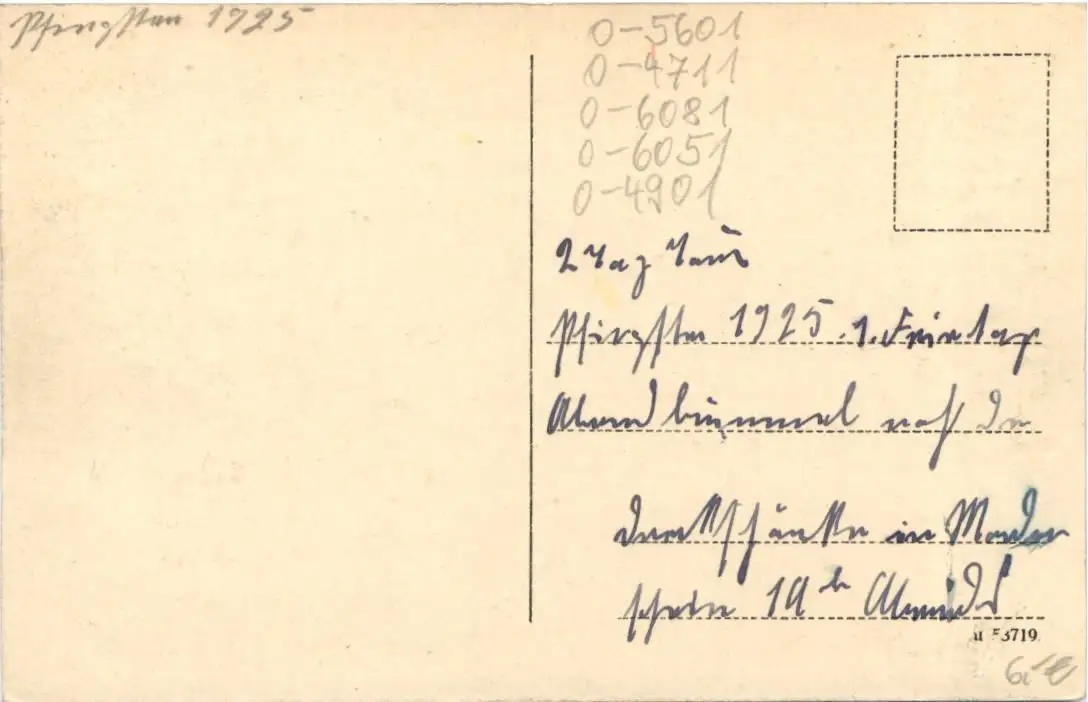 Pfingsten 1925
0-5601
0-4711
0-6081
0-6051
0-4901
2 Tag
Pfingsten 1925. 1. Feiertag
Abendbummel nach der
in
19 h Abends
53719
6.-